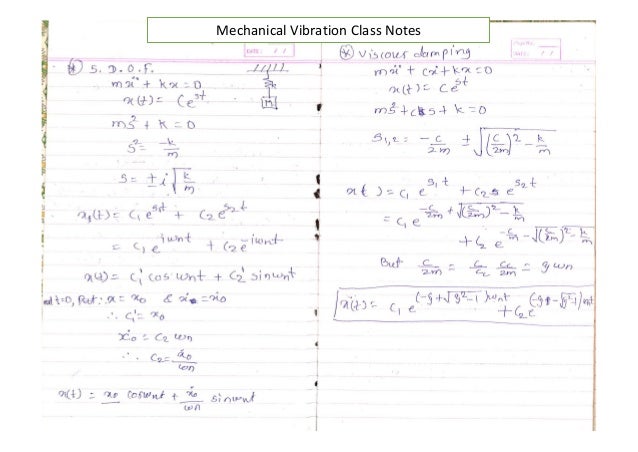 Mechanical Vibration Class Notes
DATE: / /
S. D. O. F.
mẍ + kx = 0
x(t) = C e^{st}
ms² + k = 0
s² = -k/m
s = ± i √(k/m)
x(t) = C₁ e^{s₁t} + C₂ e^{s₂t}
= C₁ e^{iωnt} + C₂ e^{-iωnt}
x(t) = C₁' cos ωnt + C₂' sin ωnt
at t=0, Put: x = x₀ & ẋ = ẋ₀
∴ C₁' = x₀
ẋ₀ = C₂ ωn
∴ C₂ = ẋ₀/ωn
x(t) = x₀ cos ωnt + ẋ₀/ωn sin ωnt
k
M
DATE: / /
Viscous damping
mẍ + cẋ + kx = 0
x(t) = C e^{st}
ms² + cs + k = 0
S₁,₂ = -c/2m ± √((c/2m)² - k/m)
x(t) = C₁ e^{s₁t} + C₂ e^{s₂t}
= C₁ e^{-c/2m + √((c/2m)² - k/m)}
+ C₂ e^{-c/2m - √((c/2m)² - k/m)}
But c/2m = c/cc cc/2m = ξ ωn
x(t) = C₁ e^{(-ξ + √(ξ²-1)) ωnt}
+ C₂ e^{(-ξ - √(ξ²-1)) ωnt}